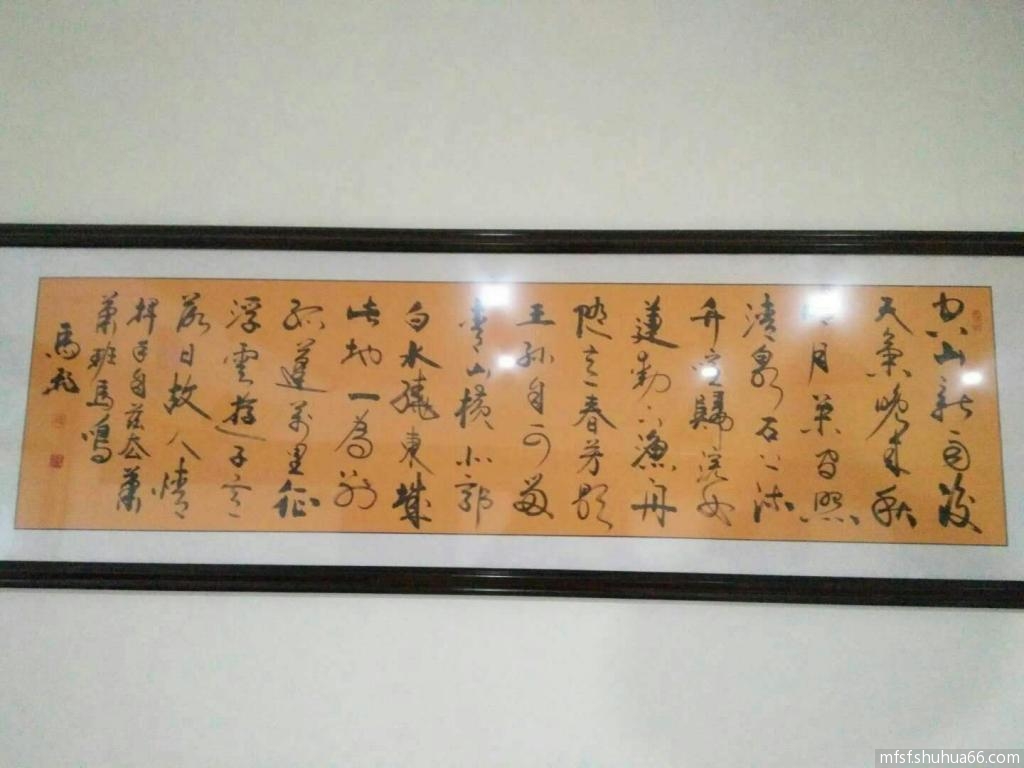 空山新雨後
天氣晚來秋
明月松間照
清泉石上流
竹喧歸浣女
蓮動下漁舟
隨意春芳歇
王孫自可留
青山橫北郭
白水繞東城
此地一為別
孤蓬萬里征
浮雲遊子意
落日故人情
揮手自茲去蕭
蕭班馬鳴
馬飛
mfsf.shuhua66.com